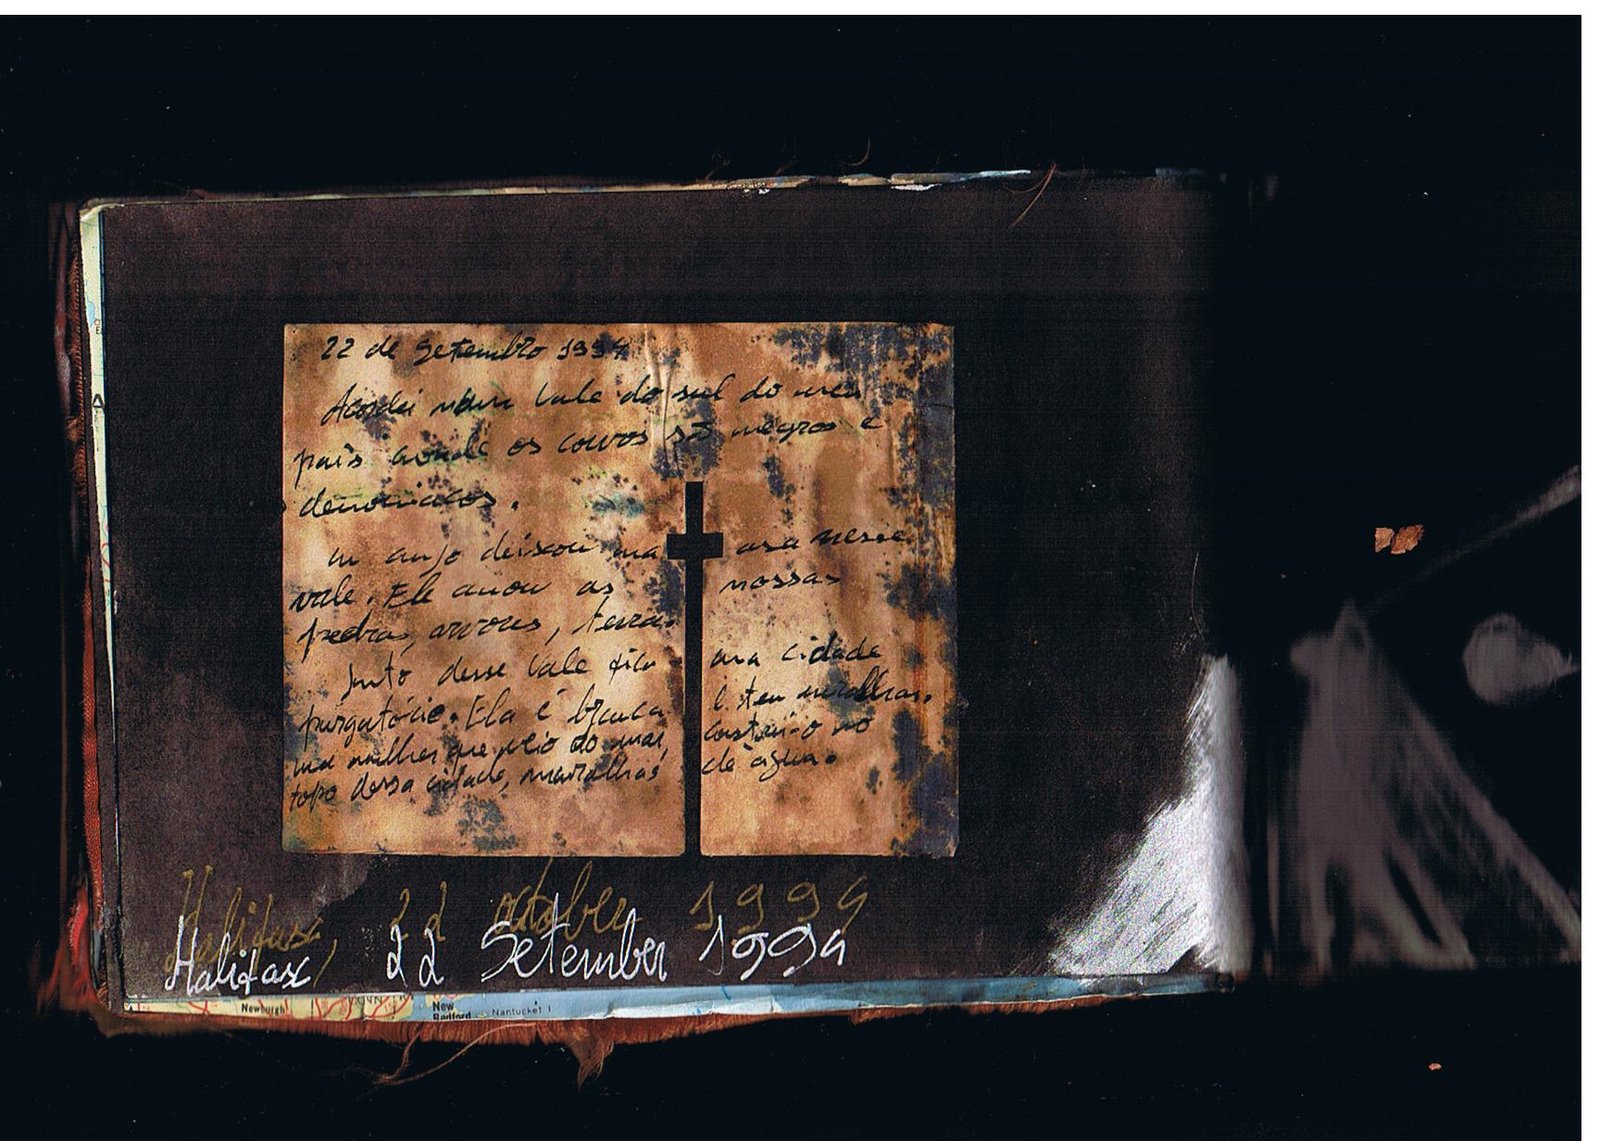 22 de Setembro 1994
Acordei num vale do sul do meu
país aonde os corvos são negros e
demoníacos.
um anjo deixou ma asa nesse
vale. Ele amou as nossas
pedras, arvores, terra.
Junto desse vale fica ma cidade
purgatório. Ela é branca muralhas.
ma mulher que veio do mar, no
topo dessa cidade, muralhas de àgua.
Halifax, 22 october 1994
Halifax 22 Setember 1994
Newburgh
New
Bedford
Nantucket I